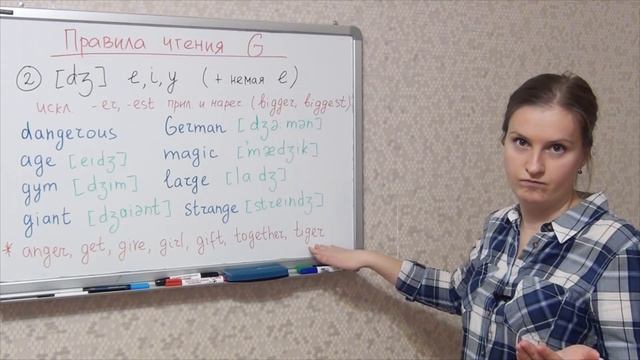 Правила чтения G
② [dʒ] e, i, y (+ немая e)
искл -er, -est прил и нареч (bigger, biggest)
dangerous German [dʒə:mən]
age [eidʒ] magic ['mædʒik]
gym [dʒim] large [la dʒ]
giant [dʒaiənt] strange [streindʒ]
* anger, get, give, girl, gift, together, tiger